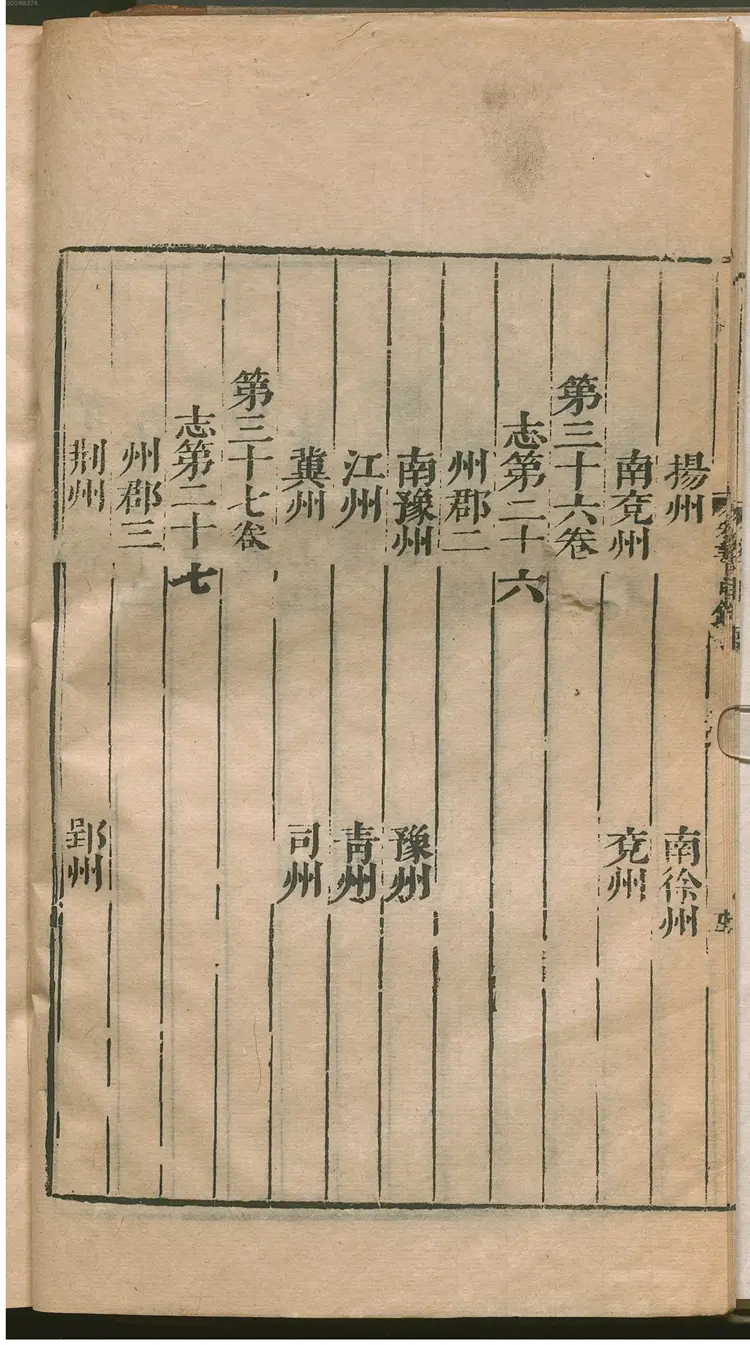 揚州　南徐州
南兗州　兗州
第三十六卷
志第二十六
州郡二
南豫州　豫州
江州　青州
冀州　司州
第三十七卷
志第二十七
州郡三
荆州　郢州